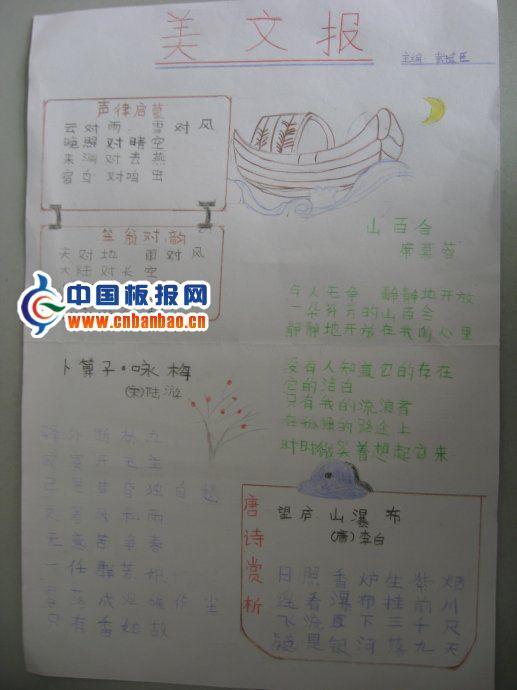 美文报
主编
声律启蒙
云对雨 雪对风
晚照对晴空
来鸿对去燕
宿鸟对鸣虫
笠翁对韵
天对地 雨对风
大陆对长空
中国板报网
www.cnbanbao.cn
山百合
席慕蓉
与人无争 静静地开放
一朵芬芳的山百合
静静地开放在我的心里
没有人知道它的存在
它的洁白
只有我的流浪者
在孤独的路途上
时时微笑着想起它来
卜算子·咏梅
(宋)陆游
驿外断桥边
寂寞开无主
已是黄昏独自愁
更著风和雨
无意苦争春
一任群芳妒
零落成泥碾作尘
只有香如故
唐诗赏析
望庐山瀑布
(唐)李白
日照香炉生紫烟
遥看瀑布挂前川
飞流直下三千尺
疑是银河落九天